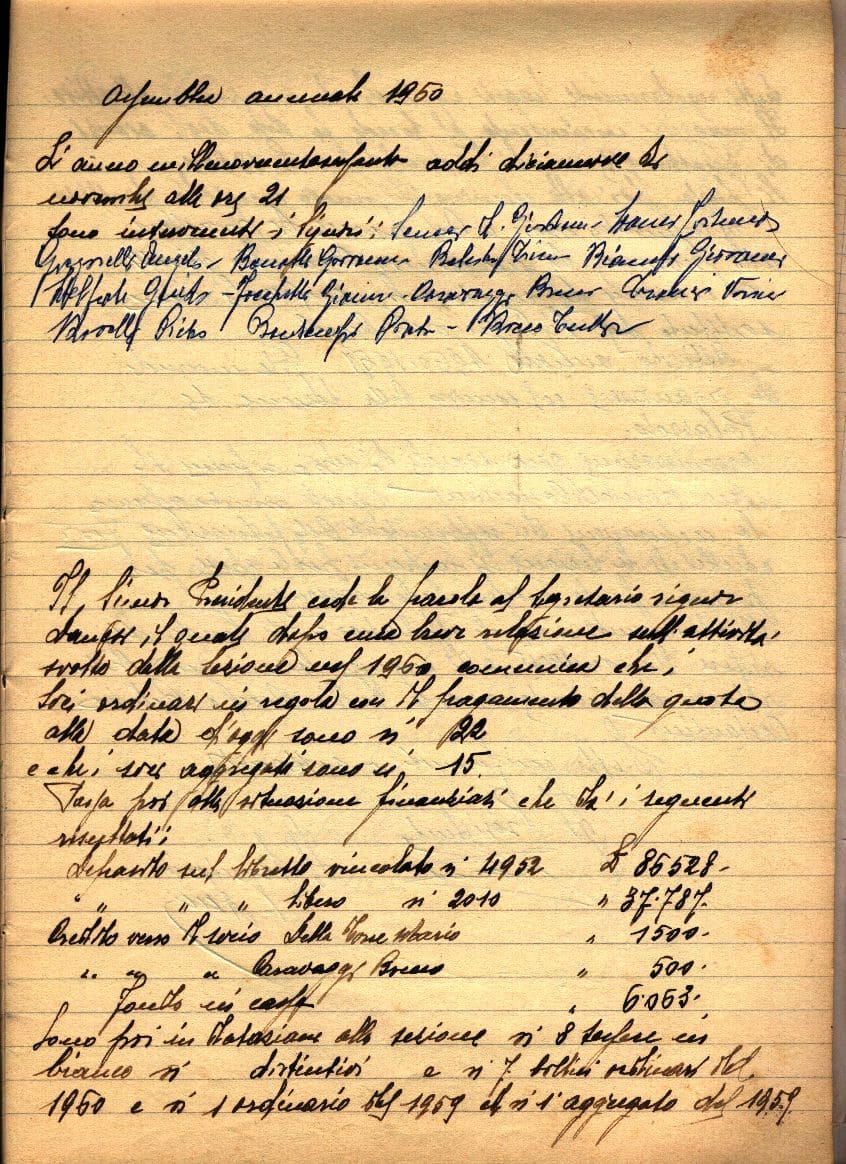 Assemblea annuale 1960
L'anno millenovecentosessanta addì diciannove di
novembre alle ore 21
Sono intervenuti i Signori:
Angelo Giovanni Bianchi Giovanni
Guido Caravaggi Bruno
Pietro
Il Signor Presidente cede la parola al Segretario signor
il quale dopo una breve relazione sull'attività
svolta dalla Sezione nel 1960 comunica che i
Soci ordinari in regola con il pagamento della quota
alla data d'oggi sono ni 22
e che i soci aggregati sono ni 15.
Passa poi alla situazione finanziari che dà i seguenti
risultati:
Deposito sul libretto vincolato ni 4952 £ 86528.-
" " " " libero ni 2010 " 37.787.
Credito verso il socio Della Torre Mario " 1500.-
" " " Caravaggi Bruno " 500.-
Fondo in cassa " 6.063.-
Sono poi in dotazione alla sezione ni 8 tessere in
bianco ni distintivi e ni 7 bollini ordinari del
1960 e ni 1 ordinario del 1959 ed ni 1 aggregato del 1959.